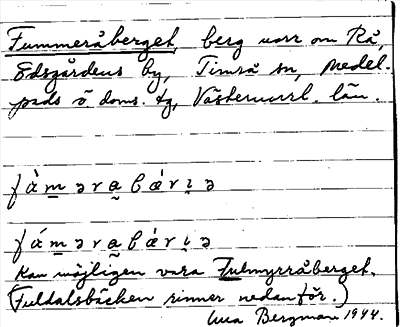 Fummeråberget, berg norr om Rå,
Edsgårdens by, Timrå sn, Medel-
pads ö. doms. tg, Västernorrl. län.
fàm̲əra̰bárı̯ə
fám̲əra̰bàrı̯ə
Kan möjligen vara Fulmyrråberget.
(Fuldalsbäcken rinner nedanför.)
Bergman 1944.